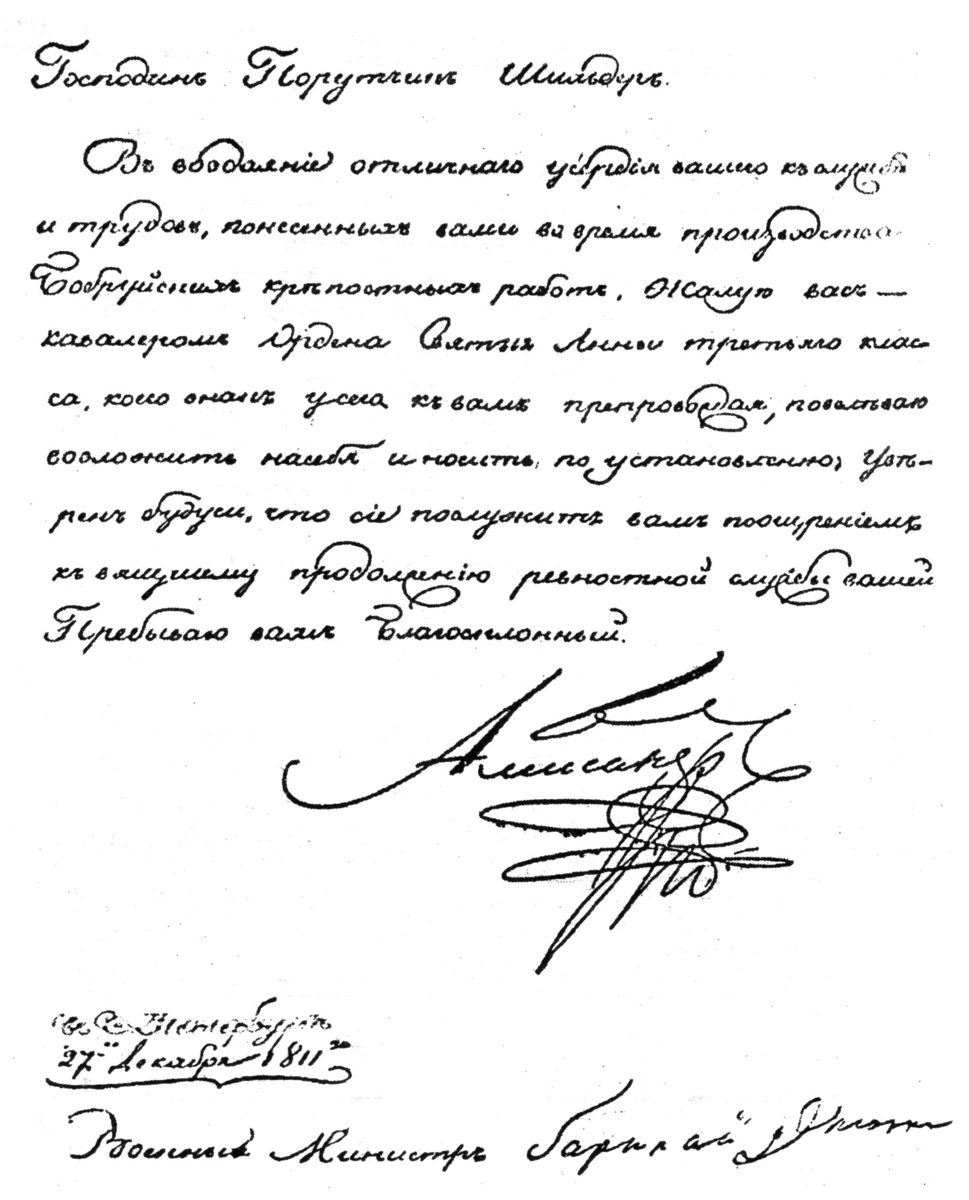 Господинъ Порутчикъ Шильдеръ.
Въ воздаяніе отличнаго усердія вашего къ службѣ
и трудовъ, понесенныхъ вами во время производства
Бобруйскихъ крѣпостныхъ работъ, Жалую васъ —
кавалеромъ Ордена Святыя Анны третьяго клас-
са, коего знакъ у сего къ вамъ препровождая, повелѣваю
возложить на себя и носить по установленію; Увѣ-
ренъ будучи, что сіе послужитъ вамъ поощреніемъ
къ вящшему продолженію ревностной службы вашей
Пребываю вамъ Благосклонный.
Александръ
въ С. Петербургѣ
27го Декабря 1811го
Военный Министръ Барклай де Толли